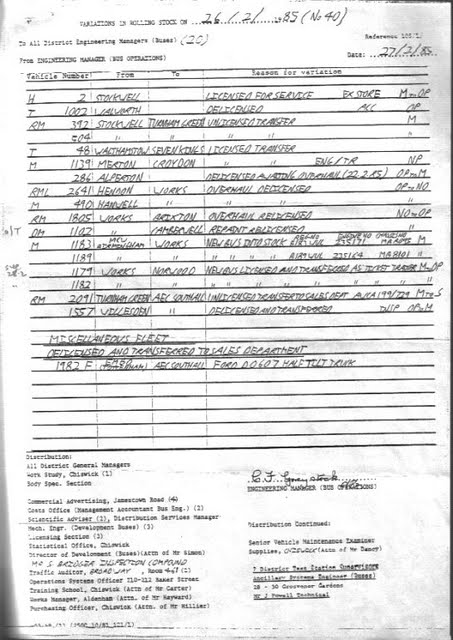 VARIATIONS IN ROLLING STOCK ON 26/2/1985 (No 40)
To All District Engineering Managers (Buses) (20)
From ENGINEERING MANAGER (BUS OPERATIONS)
Date: 27/2/85
Vehicle Number From To Reason for variation
H 2 STOCKWELL LICENSED FOR SERVICE EX STORE M to OP
T 1002 WALWORTH DELICENSED OP
RM 392 STOCKWELL TURNHAM GREEN UNLICENSED TRANSFER M
504 " " " "
T 48 WALTHAMSTOW SEVEN KINGS LICENSED TRANSFER
M 1139 MERTON CROYDON " " ENG/TR NP
286 ALPERTON DELICENSED AWAITING OVERHAUL (22.2.85) OP to M
RML 2641 HENDON WORKS OVERHAUL DELICENSED OP to NO
M 490 HANWELL " " "
RM 1805 WORKS BRIXTON OVERHAUL RELICENSED NO to OP
DM 1102 " CAMBERWELL REPAINT RELICENSED "
M 1183 MCW BIRMINGHAM WORKS NEW BUS INTO STOCK REG NO ENGINE NO CHASSIS NO M
1189 " " " " " "
1179 WORKS NORWOOD NEW BUS LICENSED AND TRANSFERRED AS TICKET TRAINER M to OP
1182 " " " " " "
RM 2091 TURNHAM GREEN AEC SOUTHALL UNLICENSED TRANSFER TO SALES DEPT M to S
1557 WILLESDEN " DELICENSED AND TRANSFERRED DISP OP to M
MISCELLANEOUS FLEET
DELICENSED AND TRANSFERRED TO SALES DEPARTMENT
1982 F AEC SOUTHALL FORD D0607 HALF TILT TRUCK
Distribution:
All District General Managers
Work Study, Chiswick (1)
Body Spec. Section
ENGINEERING MANAGER (BUS OPERATIONS)
Commercial Advertising, Jamestown Road (4)
Costs Office (Management Accountant Bus Eng.) (2)
Scientific Adviser (2), Distribution Services Manager
Mech. Engr. (Development Buses) (3)
Licensing Section (2)
Statistical Office, Chiswick
Director of Development (Buses)(Attn of Mr Simon)
MR S BRIDGER INSPECTION COMPOUND
Traffic Auditor, BROADWAY, Room 421 (2)
Operations Systems Officer 110-112 Baker Street
Training School, Chiswick (Attn of Mr Carter)
Works Manager, Aldenham (Attn of Mr Hayward)
Purchasing Officer, Chiswick (Attn of Mr Hillier)
Distribution Continued:
Senior Vehicle Maintenance Examiner
Supplies, CHISWICK (Attn of Mr Dancy)
7 District Test Station Supervisors
Ancillary Systems Engineer (Buses)
28 - 50 Grosvenor Gardens
Mr J Powell Technical